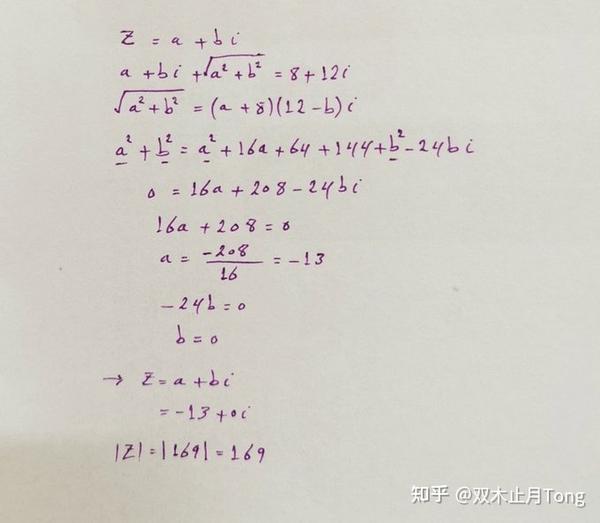 Z = a + bi
a + bi + √(a² + b²) = 8 + 12i
√(a² + b²) = (a + 8)(12 - b)i
a² + b² = a² + 16a + 64 + 144 + b² - 24bi
0 = 16a + 208 - 24bi
16a + 208 = 0
a = -208/16 = -13
-24b = 0
b = 0
→ Z = a + bi
= -13 + 0i
|Z| = |169| = 169
知乎 @双木止月Tong